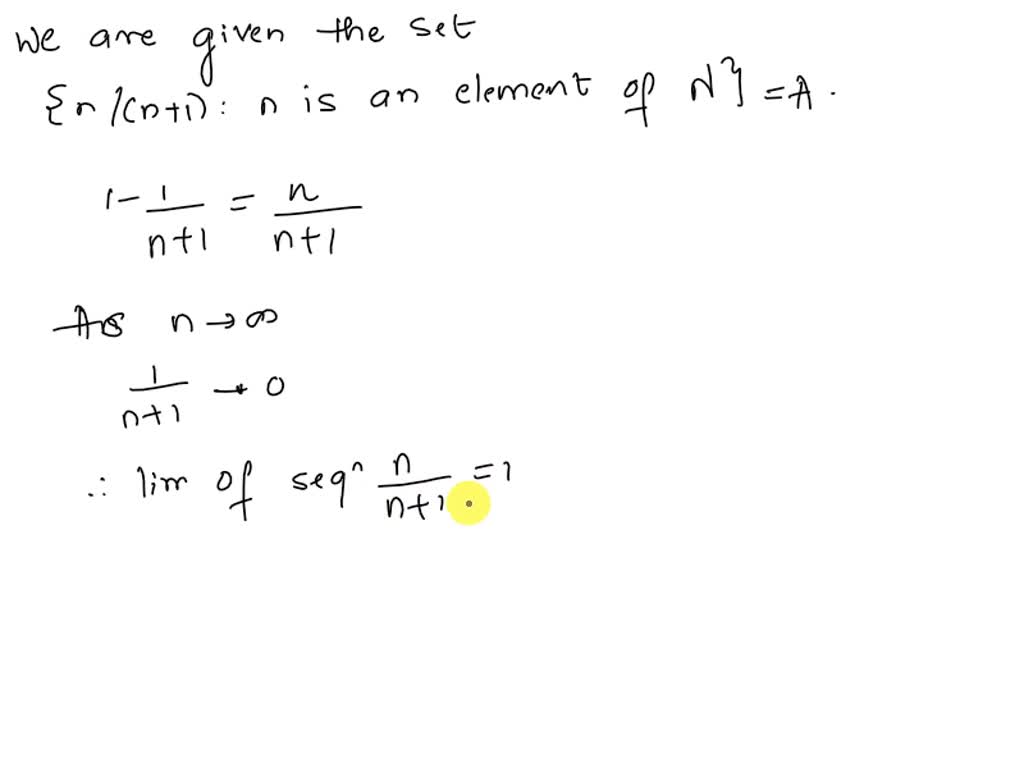 We are given the set
{n/(n+1): n is an element of N} = A.
1 - 1/(n+1) = n/(n+1)
As n → ∞
1/(n+1) → 0
∴ lim of seqⁿ n/(n+1) = 1